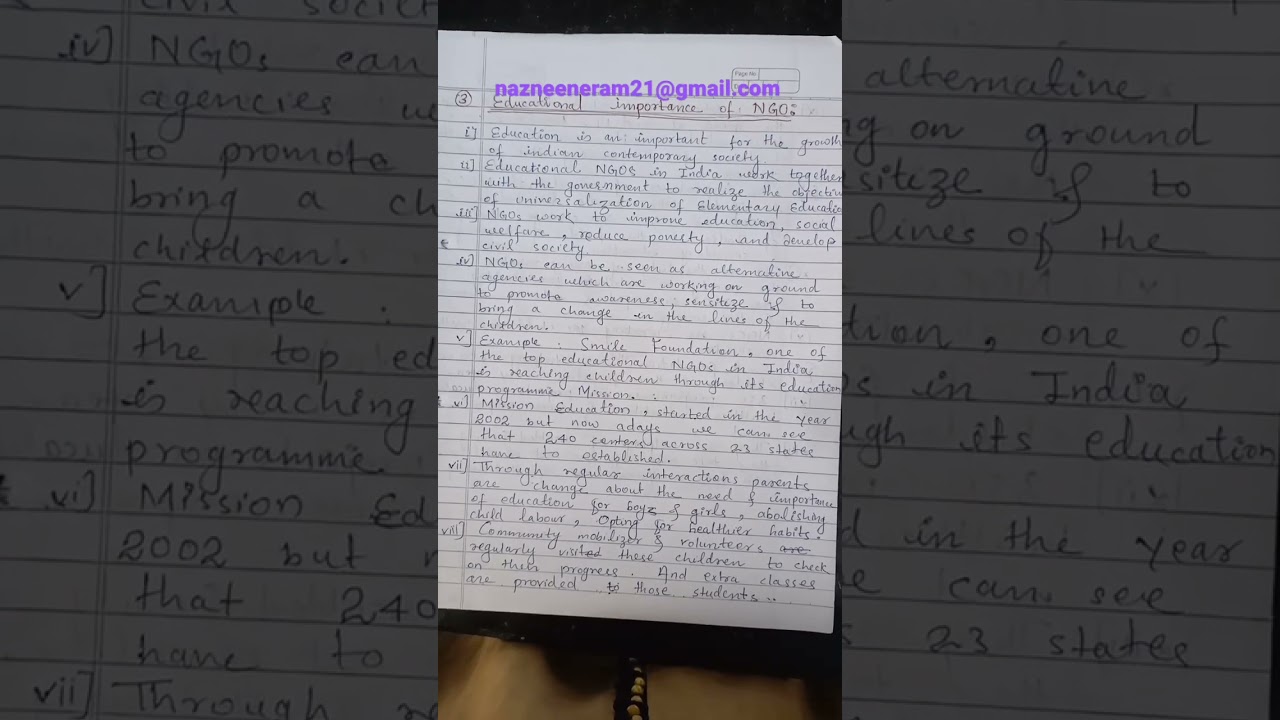 Page No
nazneeneram21@gmail.com
③ Educational importance of NGOs
i] Education is an important for the growth
of indian contemporary society
ii] Educational NGOs in India work together
with the government to realize the objectiv
of universalization of Elementary Educatio
iii] NGOs work to improve education, social
welfare, reduce poverty, and develop
civil society
iv] NGOs can be seen as alternative
agencies which are working on ground
to promote awareness, sensitize & to
bring a change in the lines of the
children.
v] Example : Smile Foundation, one of
the top educational NGOs in India
is reaching children through its education
programme Mission.
vi] Mission Education, started in the year
2002 but now adays we can see
that 240 centers across 23 states
have to established.
vii] Through regular interactions parents
are change about the need & importance
of education for boys & girls, abolishing
child labour, Opting for healthier habits.
viii] Community mobilizer & volunteers are
regularly visited these children to check
on their progress. And extra classes
are provided to those students..